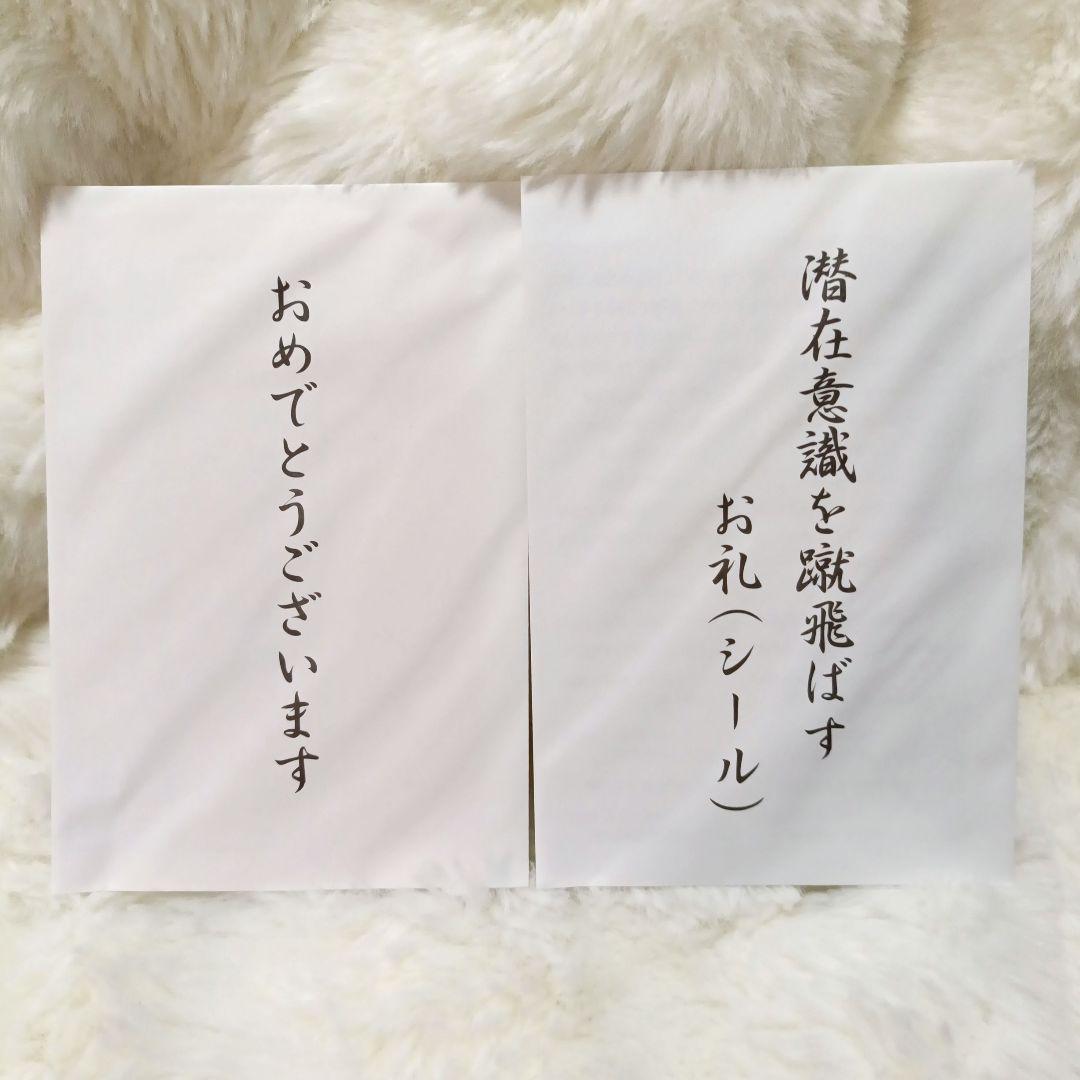 おめでとうございます
潜在意識を蹴飛ばす
お礼(シール)